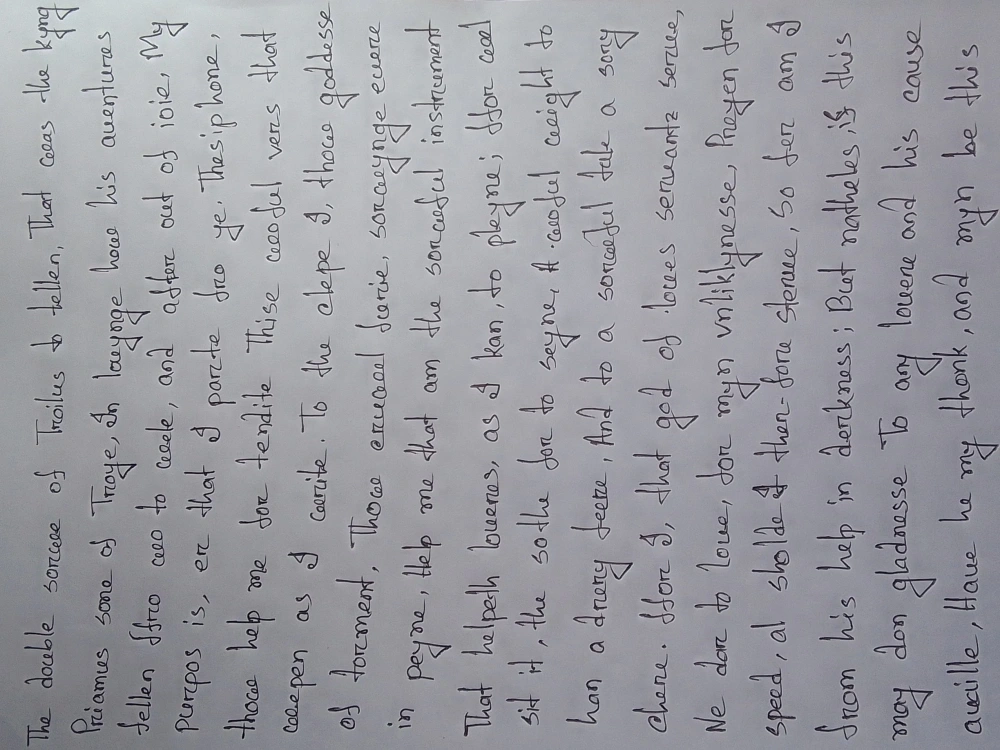 The double sorwe of Troilus to tellen, That was the kyng
Priamus sone of Troye, In louynge how his auentures
fellen ffro wo to wele, and after out of ioie, My
purpos is, er that I parte fro ye. Thesiphone,
thow help me for tendite Thise woful vers that
weepen as I write. To the clepe I, thow goddesse
of torment, Thow cruwel furie, sorwynge euere
in peyne, Help me that am the sorwful instrument
That helpeth loueres, as I kan, to pleyne; ffor wel
sit it, the sothe for to seyne, A woful wight to
han a drery feere, And to a sorwful tale a sory
chere. ffor I, that god of loues seruantz serue,
Ne dar to loue, for myn vnliklynesse, Preyen for
speed, al sholde I ther-fore sterue, so fer am I
from his help in derkness; But natheles, if this
may don gladnesse To any louere and his cause
auaille, Haue he my thonk, and myn be this